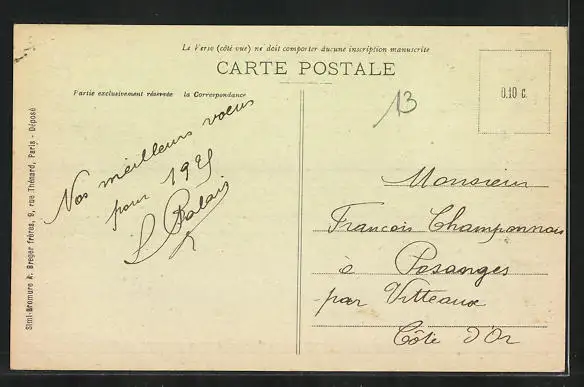 Le Verso (côté vue) ne doit comporter aucune inscription manuscrite
CARTE POSTALE
Partie exclusivement réservée à la Correspondance
0.10 c.
13
Nos meilleurs vœux
pour 1925
Simi-Bromure A. Breger frères, 9, rue Thénard, Paris - Déposé
Monsieur
François Champonnois
à Posanges
par Vitteaux
Côte d'Or